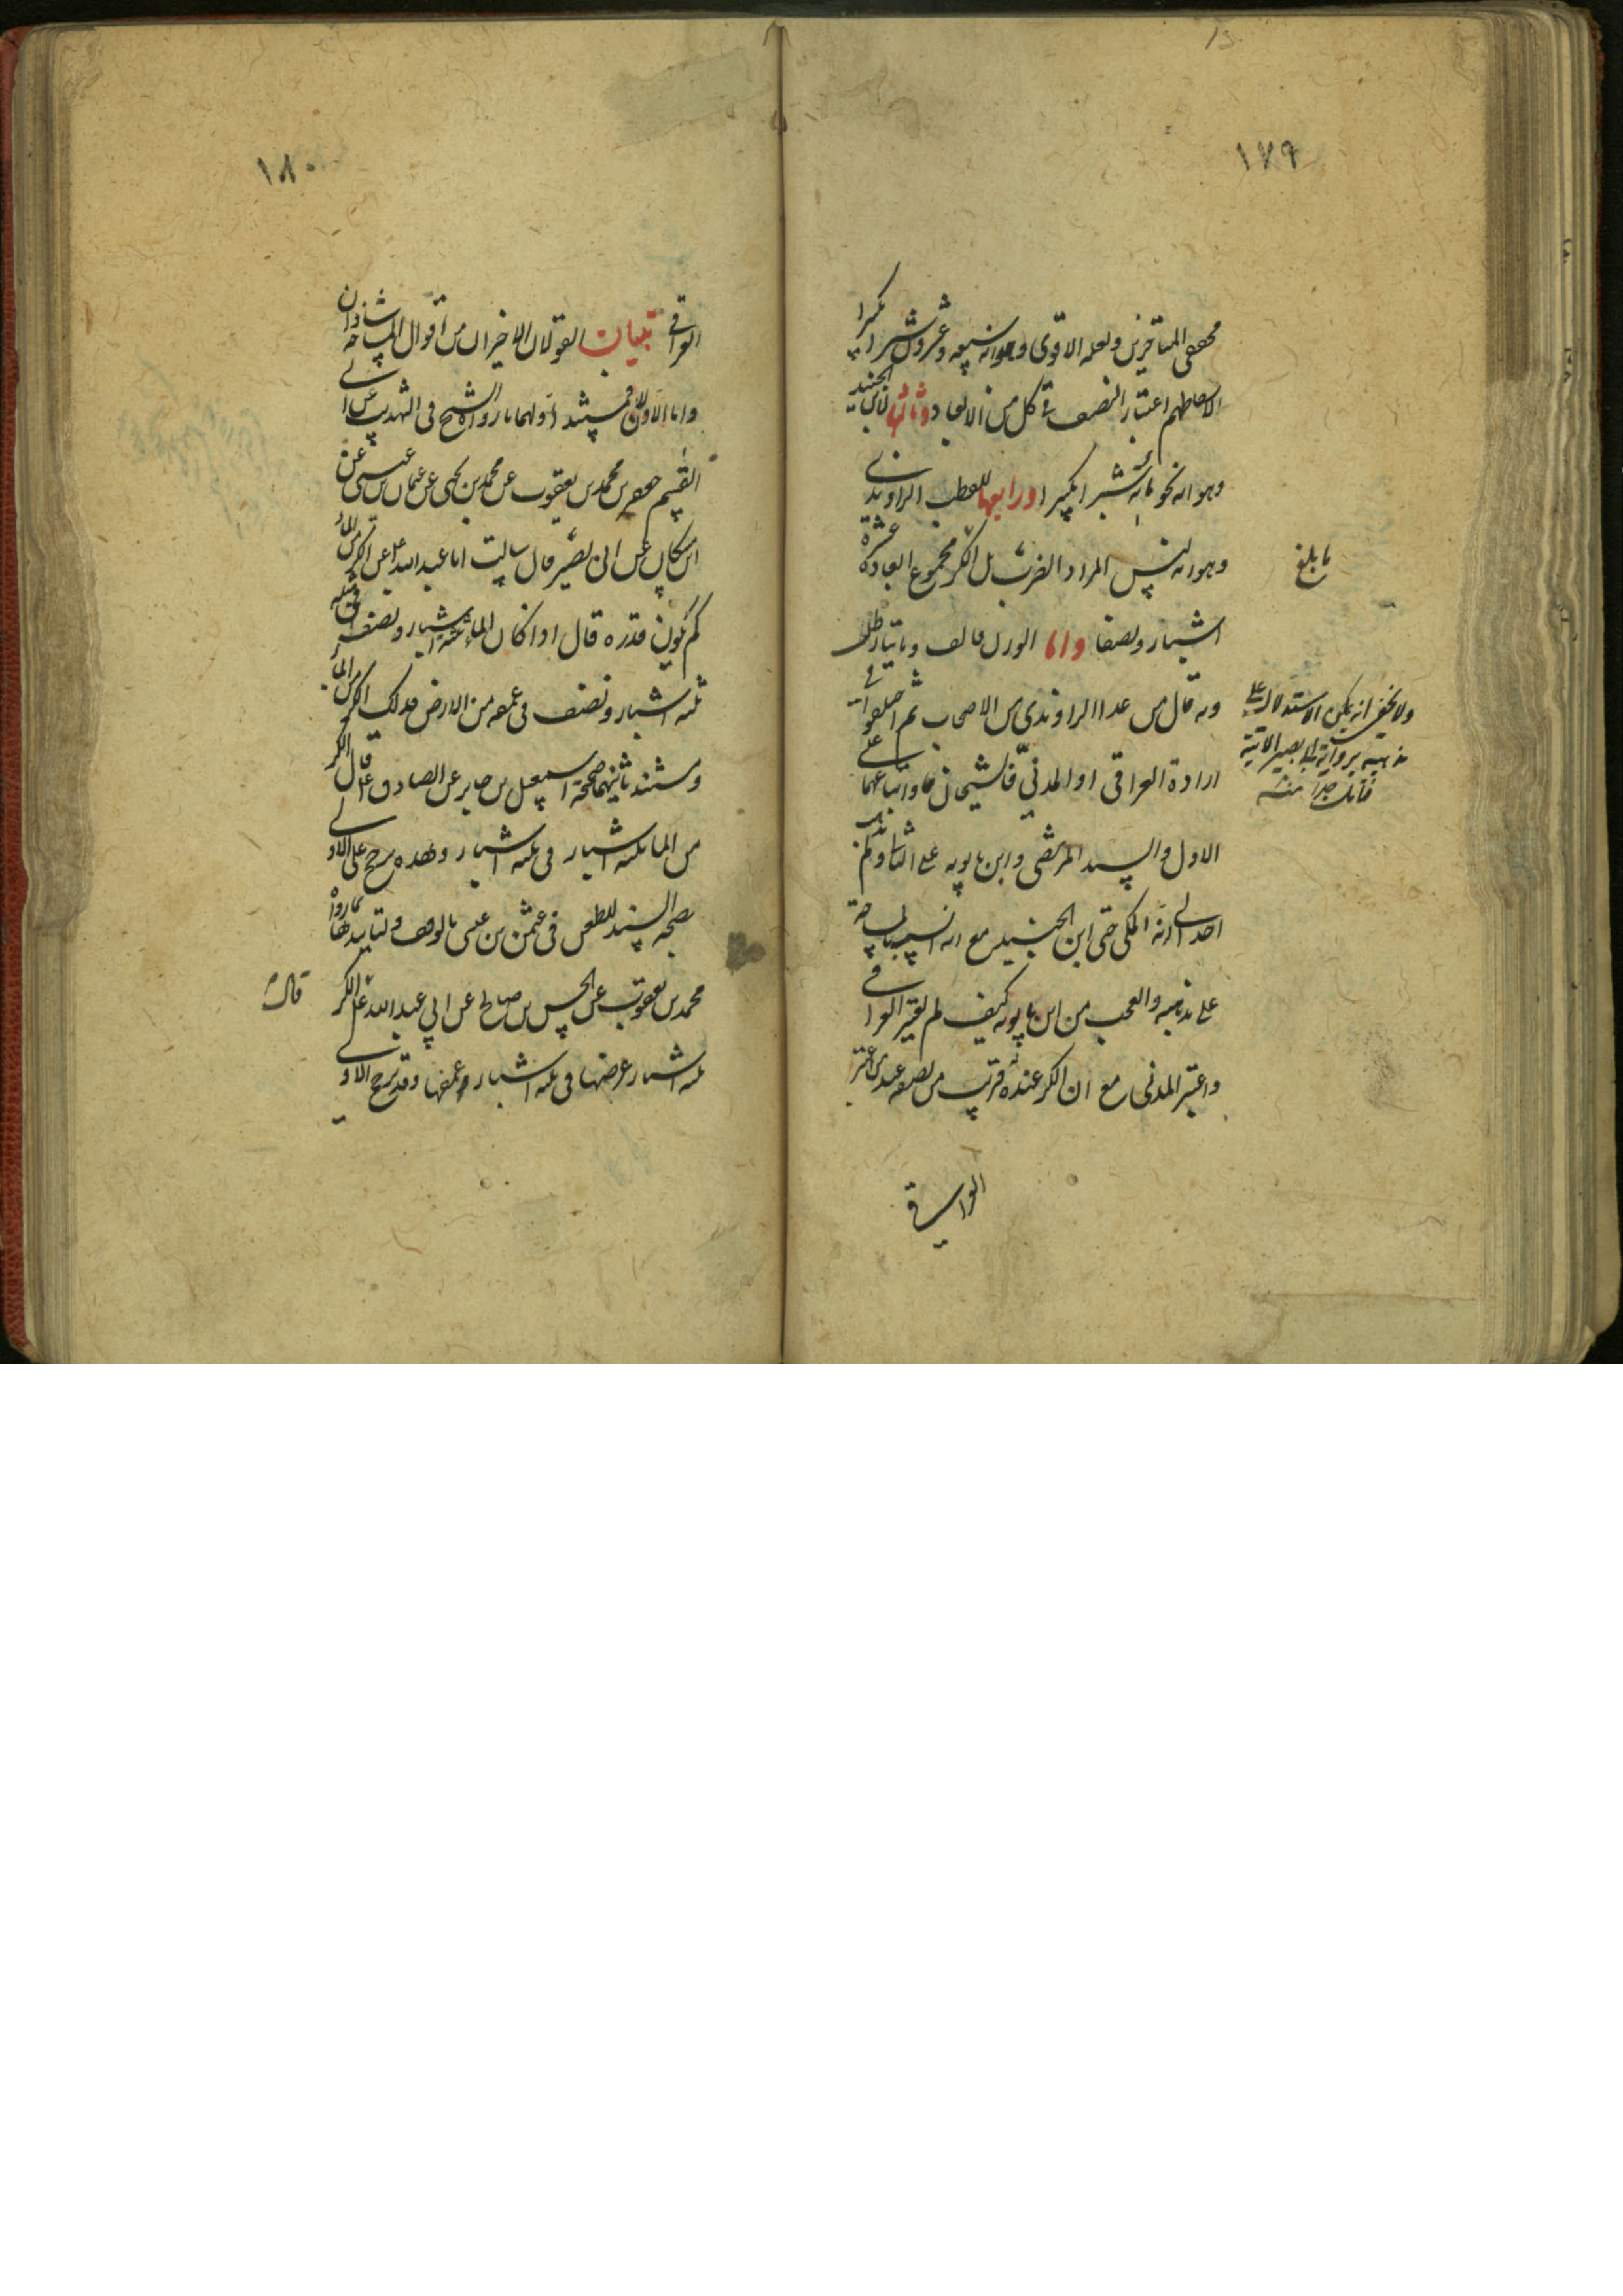 ١٧٩
محققى المتاخرين ولعله الاقوى وهو انه سبعه وعشرون شبرا مكسرا
لاسقاطهم اعتبار النصف فى كل من الابعاد وثالثها لابن الجنيد
وهو انه نحو مائة شبر مكسرا ورابعها للقطب الراوندى
وهو انه ليس المراد الضرب بل الكر مجموع ابعاده عشرة
اشبار ونصفا واما الوزن فالف ومائتا رطل
وبه قال من عدا الراوندى من الاصحاب ثم اختلفوا فى
ارادة العراقى او المدنى فالشيخان واتباعهما على
الاول والسيد المرتضى وابن بابويه على الثانى
احد الى ارادة المكى حتى ابن الجنيد مع انه انسب بالمساحة
على مذهبه والعجب من ابن بابويه كيف لم يعتبر العراقى
واعتبر المدنى مع ان الكر عنده قريب من نصفه عند من اعتبر
العراقى
ما بلغ
ولا يخفى انه يمكن الاستدلال على
مذهبه برواية ابى بصير الاتية
فتامل جدا منه
١٨٠
العراقى تبيان القولان الاخيران من اقوال المساحه شاذان
واما الاولان فمستند اولهما ما رواه الشيخ فى التهذيب عن ابى
القسم جعفر بن محمد بن يعقوب عن محمد بن يحيى عن عثمان بن عيسى عن
ابن مسكان عن ابى بصير قال سالت ابا عبد الله ع عن الكر من الماء
كم يكون قدره قال اذا كان الماء ثلثة اشبار ونصف فى مثله
ثلثه اشبار ونصف فى عمقه من الارض فذلك الكر من الماء
ومستند ثانيهما صحيحة اسمعيل بن جابر عن الصادق ع قال الكر
من الماء ثلثه اشبار فى ثلثه اشبار وهذه ترجح على الاولى
بصحه السند للطعن فى عثمن بن عيسى بالوقف ولتاييدها بما رواه
محمد بن يعقوب عن الحسن بن صالح عن ابى عبد الله ع الكر
ثلثه اشبار عرضها فى ثلثه اشبار وعمقها وقد ترجح الاولى
قال